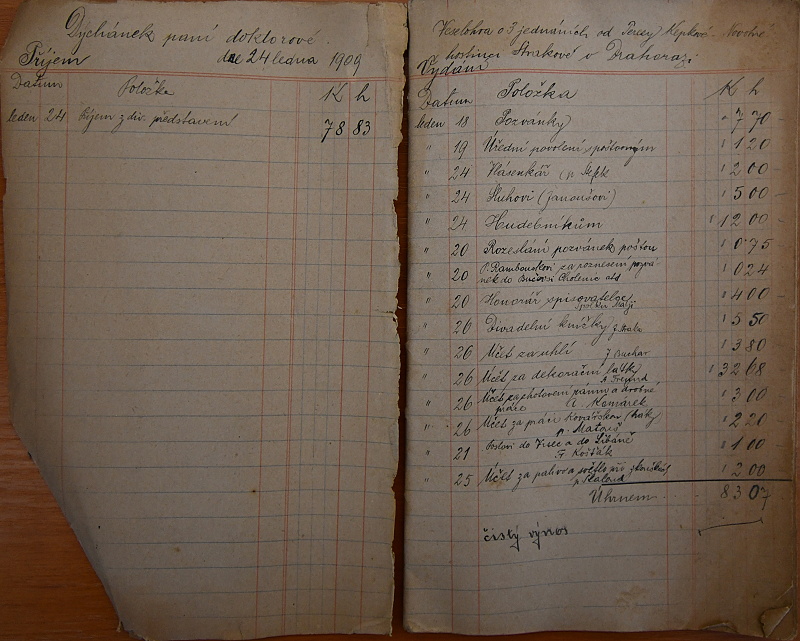 Dýchánek paní doktorové.
Příjem dne 24 ledna 1909
Datum Položka K h
leden 24 Příjem z div. představení 78 83
Veselohra o 3 jednáních od Terezy
hostinci Strakově v Drahorazi
Vydání
Datum Položka K h
leden 18 Pozvánky " 7 70 -
" 19 Úřední povolení " 1 20
" 24 Vlásenkář (p. " 2 00 -
" 24 Sluhovi (Janoušovi) " 5 00 -
" 24 Hudebníkům " 12 00 -
" 20 Rozeslání pozvánek poštou " 0 75
" 20 za roznesení pozvá-
nek do Cholenic atd " 0 24
" 20 Honorář spisovatelce " 4 00 -
" 26 Divadelní knížky " 5 50
" 26 Účet za uhlí J Buchar " 3 80
" 26 Účet za dekorační látky
A. Freund " 32 68
" 26 Účet za a drobné
práce A. Komárek " 3 00
" 26 Účet za práci
p. Matouš " 2 20
" 21 Poslovi do a do Libáně
F. Košťák " 1 00
" 25 Účet za palivo a světlo při
" 2 00
Úhrnem 83 07
čistý výnos